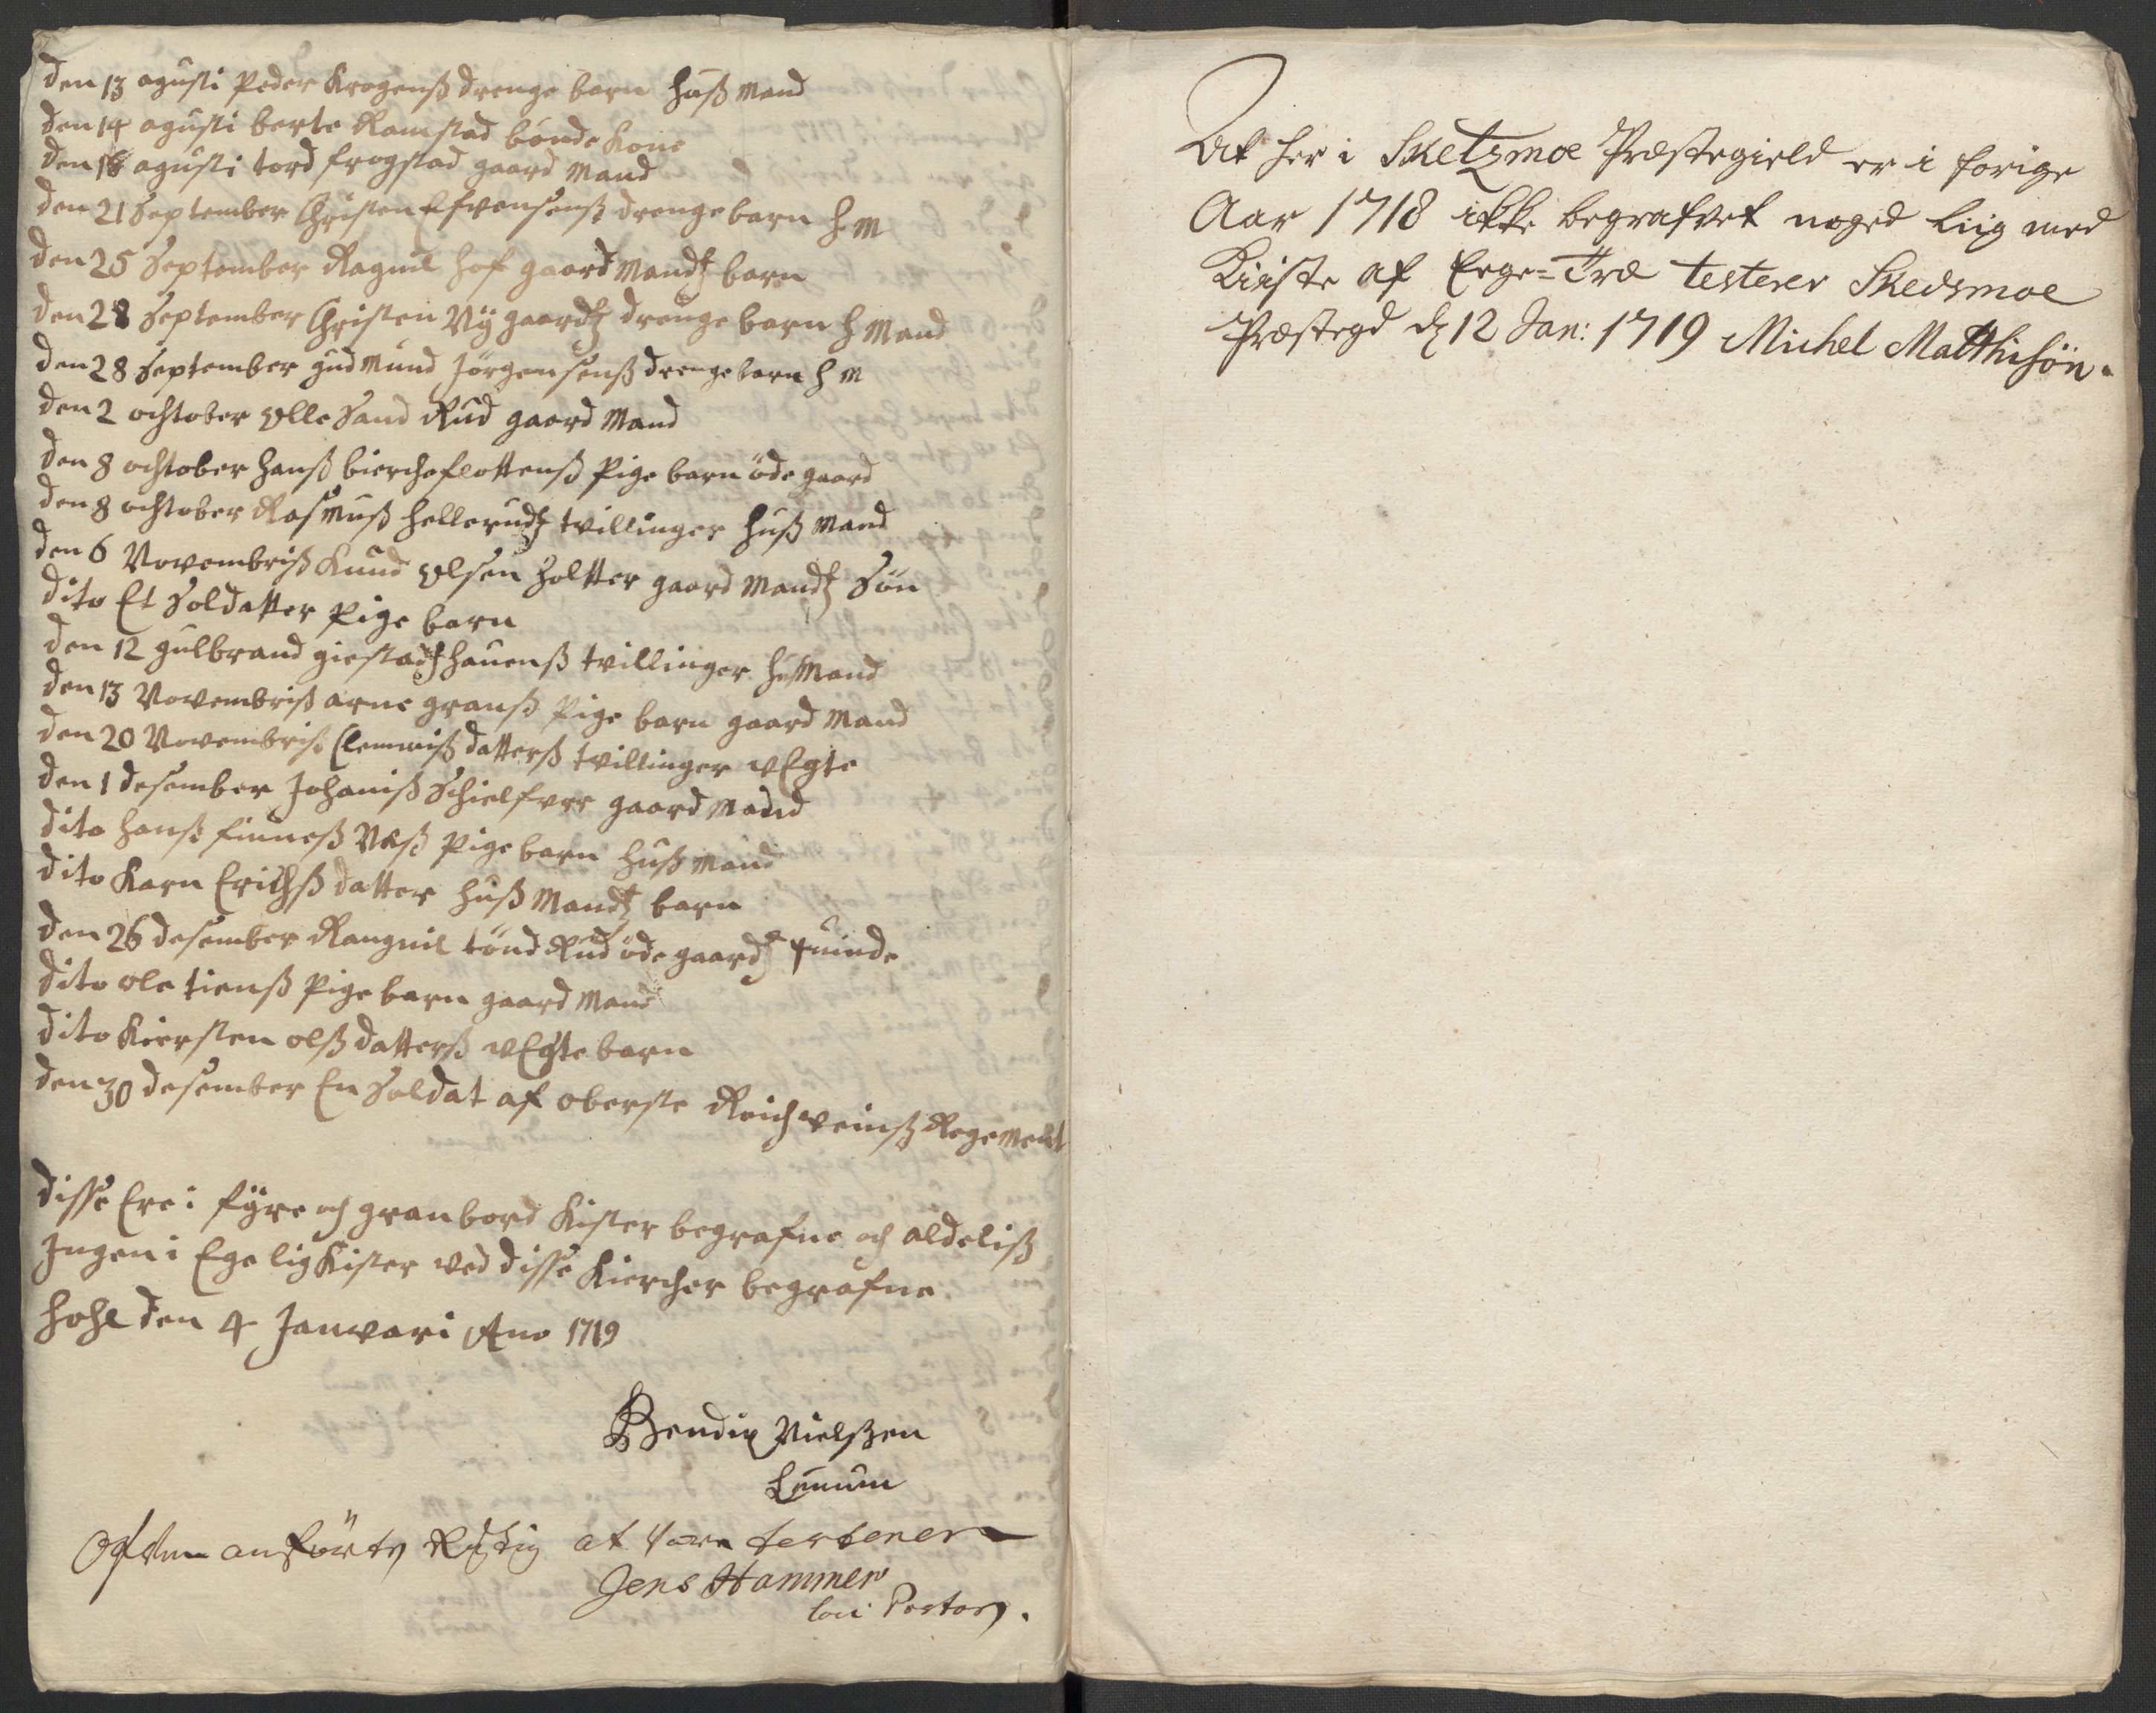 den 13 agusti Peder Krogenß drenge barn huß mand
den 14 agusti berte Ramstad bonde Kone
den 18 agusti tord frogstad gaard mand
den 21 September Christen Efvensenß drenge barn h m
den 25 September Ragnil hof gaard mandtz barn
den 28 September Christen Nÿ gaardtz drenge barn h mand
den 28 September gudmund Jörgensenß drenge barn h m
den 2 ochtober Olle Sand Rud gaard mand
den 8 ochtober hanß biercheflottenß Pige barn öde gaard
den 8 ochtober Rasmuß hellerudtz tvillinger huß mand
den 6 Novembriß Knud Olsen Holtter gaard mandtz Sön
dito Et Soldatter Pige barn
den 12 gulbrand giestadtz hauenß tvillinger hußmand
den 13 Novembriß arne granß Pige barn gaard mand
den 20 Novembriß Clemmiß datterß tvillinger uEgte
den 1 desember Johaniß Schielfver gaard mand
dito hanß finneß Næß Pige barn huß mand
dito Karn Erichß datter huß mandtz barn
den 26 desember Rangnil tönd Rud öde gaardtz quinde
dito ole tienß Pige barn gaard mand
dito Kiersten olß datterß uEgte barn
den 30 desember En Soldat af oberste Reichweinß Regement
disse Ere i fÿre och granbord Kister begrafne och aldeliß
Ingen i Ege lig Kister ved disse Kiercher begrafne
hohl den 4 Januari Ano 1719
Bendix Nielßen
Lunum
anförte Rigtig at være testerer
Jens Hammer
loci Pastor.
At her i Sketzmoe Præstegield er i forige
Aar 1718 ikke begrafvet noged Liig med
Kiiste af Eege-Træ testerer Skedsmoe
Præstegd d 12 Jan: 1719 Michel Matthisön.